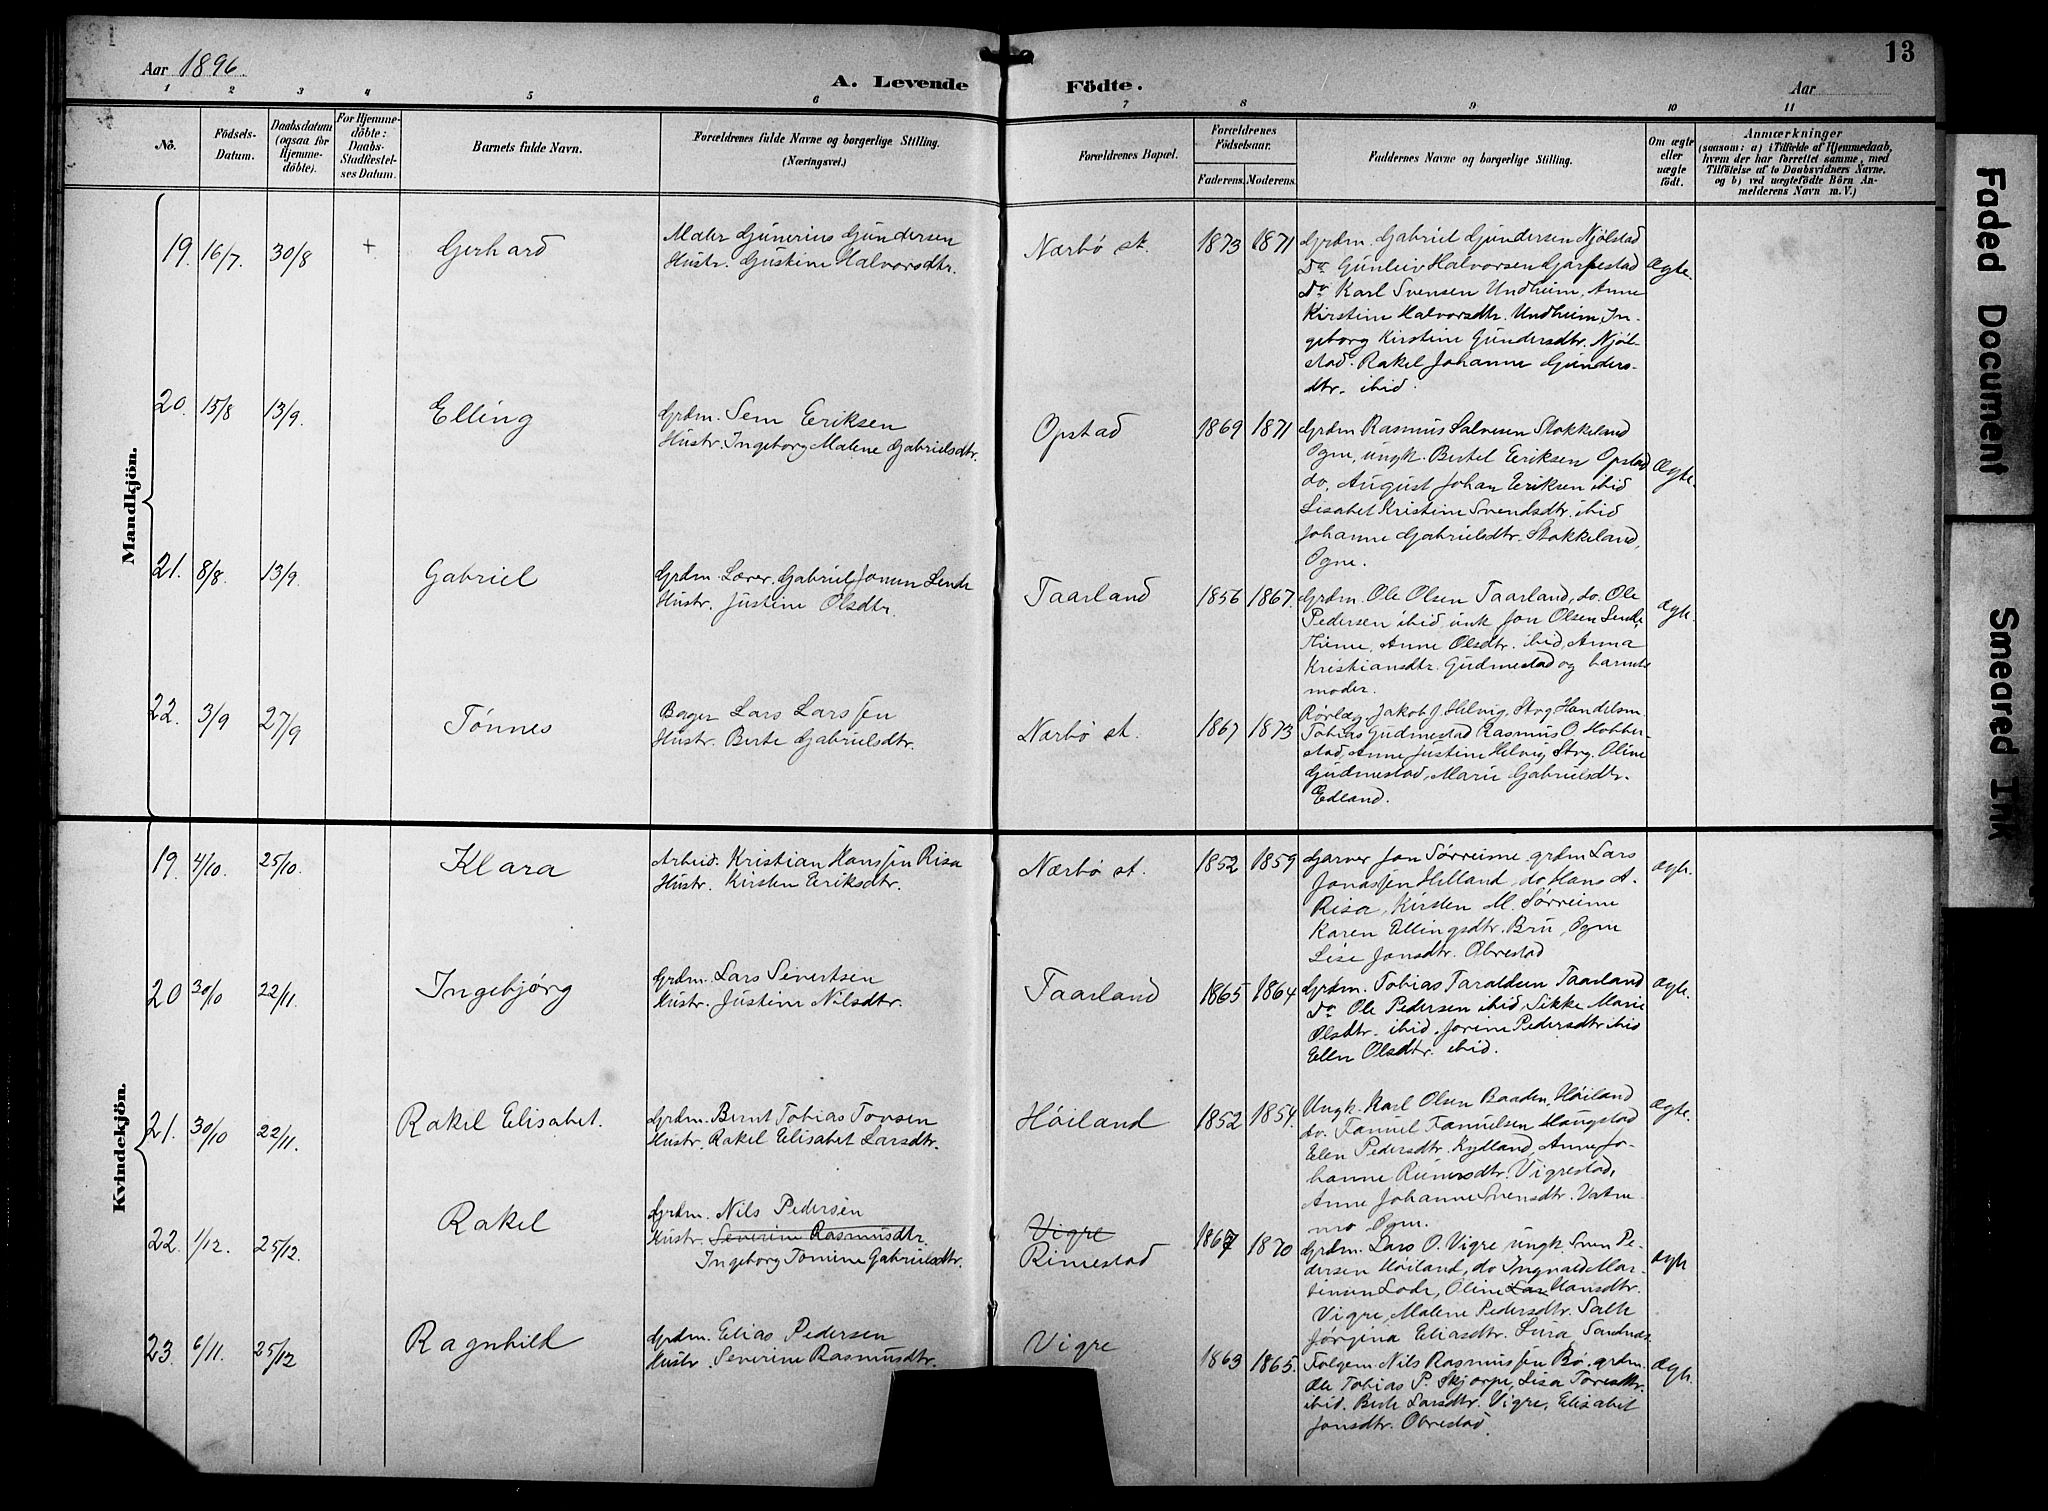 Aar 1896.
A. Levende Födte.
Aar
13
1 2 3 4 5 6 7 8 9 10 11
Nô.
Födsels-Datum.
Daabsdatum (ogsaa for Hjemme-döbte).
For Hjemme-döbte: Daabs-Stadfæstel-ses Datum.
Barnets fulde Navn.
Forældrenes fulde Navne og borgerlige Stilling.
(Næringsvei.)
Forældrenes Bopæl.
Forældrenes Födselsaar.
Faderens. Moderens.
Faddernes Navne og borgerlige Stilling.
Om ægte eller uægte födt.
Anmærkninger
(saasom: a) i Tilfælde af Hjemmedaab,
hvem der har forrettet samme, med
Tilföielse af to Daabsvidners Navne.
og b) ved uægtefödte Börn An-
melderens Navn m. V.)
Mandkjön.
19. 16/7 30/8 + Gerhard
Maler Gunerius Gundersen
Hustr. Gustine Halvorsdtr.
Nærbö st. 1873 1871
Grdm. Gabriel Gundersen Njölstad
Do Gunleiv Halvorsen Garpestad
Do Karl Svensen Undheim, Anne
Kirstine Halvorsdtr. Undheim, In-
geborg Kirstine Gundersdtr. Njöl-
stad. Rakel Johanne Gunders-
dtr. ibid.
Ægte.
20. 15/8 13/9. Elling
Grdm. Sem Eriksen
Hustr. Ingeborg Malene Gabrielsdtr.
Opstad 1869 1871
Grdm Rasmus Salvesen Stokkeland
Ogne, ungk. Bertel Eriksen Opstad
do, August Johan Eriksen ibid
Lisabet Kristine Svendsdtr. ibid
Johanne Gabrielsdtr. Stokkeland,
Ogne.
Ægte.
21. 8/8. 13/9. Gabriel
Grdm. Lærer. Gabriel Lende
Hustr. Justine Olsdtr.
Taarland 1856 1867.
Grdm. Ole Olsen Taarland, do. Ole
Pedersen ibid, Jon Olsen Lende
Anne Olsdtr. ibid, Anna
Kristiansdtr. Gudmestad og barnets
moder.
Ægte.
22. 3/9 27/9 Tönnes
Bager Lars Larssen
Hustr. Berte Gabrielsdtr.
Nærbö st. 1867 1873
Jakob J. Helvig, Stvg Handelsm.
Tobias Gudmestad Rasmus O. Hobber-
stad, Anne Justine Helvig, Stvg. Oline
Gudmestad, Marie Gabrielsdtr.
Edland.
Kvindekjön.
19. 4/10 25/10. Klara
Arbeid. Kristian Hanssen Risa
Hustr. Kirsten Eriksdtr.
Nærbö st. 1852 1859
Garver Jon Sörreime, grdm Lars
Jonassen Helland, do Hans A.
Risa, Kirsten M. Sörreime
Karen Ellingsdtr. Bru, Ogne
Lise Jonsdtr. Obrestad
ægte.
20 30/10 22/11. Ingebjörg
Grdm. Lars Sivertsen
Hustr. Justine Nilsdtr.
Taarland 1865 1864
Grdm. Tobias Taraldsen Taarland
Do Ole Pedersen ibid, Sikke Marie
Olsdtr. ibid. Jorine Pedersdtr ibid
Ellen Olsdtr. ibid.
Ægte.
21. 30/10 22/11. Rakel Elisabet.
Grdm. Bernt Tobias Tonsen
Hustr. Rakel Elisabet Larsdtr.
Höiland 1852 1854.
Ungk. Karl Olsen Baaden, Höiland
do. Haugstad
Elen Pedersdtr. Kydland, Anne Jo-
hanne Reiniersdtr. Vigrestad,
Anne Johanne Svensdtr. Vatne-
mo Ogne.
Ægte.
22. 1/12. 25/12. Rakel
Grdm. Nils Pedersen
Hustr. Severine Rasmusdtr.
Ingeborg Tomine Gabrielsdtr.
Vigre
Rimestad 1867 1870
Grdm. Lars O. Vigre ungk. Sven Pe-
dersen Höiland, do Ingvald Mar-
tinsen Lode, Oline Lar Hansdtr.
Vigre, Malene Pedersdtr. Salte
Jörgina Eliasdtr. Lura, Sandnæs.
Ægte
23. 6/11. 25/12 Ragnhild
Grdm. Elias Pedersen
Hustr. Severine Rasmusdtr.
Vigre 1863 1865.
Folgem. Nils Rasmussen Bö. grdm.
Ole Tobias P. Skjærpe, Lisa Toresdtr.
ibid. Berte Larsdtr. Vigre, Elisabet
Jonsdtr. Obrestad.
Ægte.
Faded Document
Smeared Ink